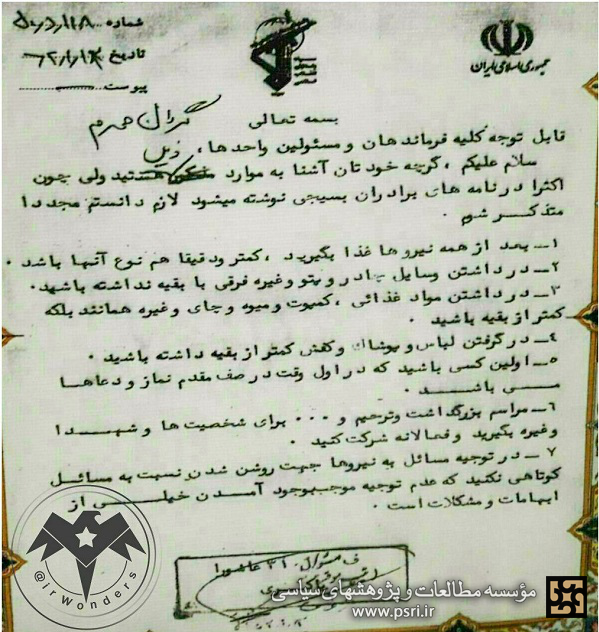 شماره
تاریخ
پیوست
جمهوری اسلامی ایران
بسمه تعالی
قابل توجه کلیه فرماندهان و مسئولین واحدها،
سلام علیکم، گرچه خودتان آشنا به موارد ذیل هستید ولی چون
اکثرا در نامه های برادران بسیجی نوشته میشود لازم دانستم مجددا
متذکر شوم.
۱ـ بعد از همه نیروها غذا بگیرید، کمتر و دقیقا هم نوع آنها باشد.
۲ـ در داشتن وسایل چادر و پتو وغیره فرقی با بقیه نداشته باشید.
۳ـ در داشتن مواد غذائی، کمپوت و میوه و چای وغیره همانند بلکه
کمتر از بقیه باشید.
۴ـ در گرفتن لباس و پوشاک و کفش کمتر از بقیه داشته باشید.
۵ـ اولین کسی باشید که در اول وقت در صف مقدم نماز و دعاها
می باشد.
۶ـ مراسم بزرگداشت وترحیم و ... برای شخصیت ها و شهدا
وغیره بگیرید و فعالانه شرکت کنید.
۷ـ در توجیه مسائل به نیروها جهت روشن شدن نسبت به مسائل
کوتاهی نکنید که عدم توجیه موجب بوجود آمدن خیلی از
ابهامات و مشکلات است.
عاشورا
موسسه مطالعات و پژوهشهای سیاسی
www.psri.ir
@irWonders